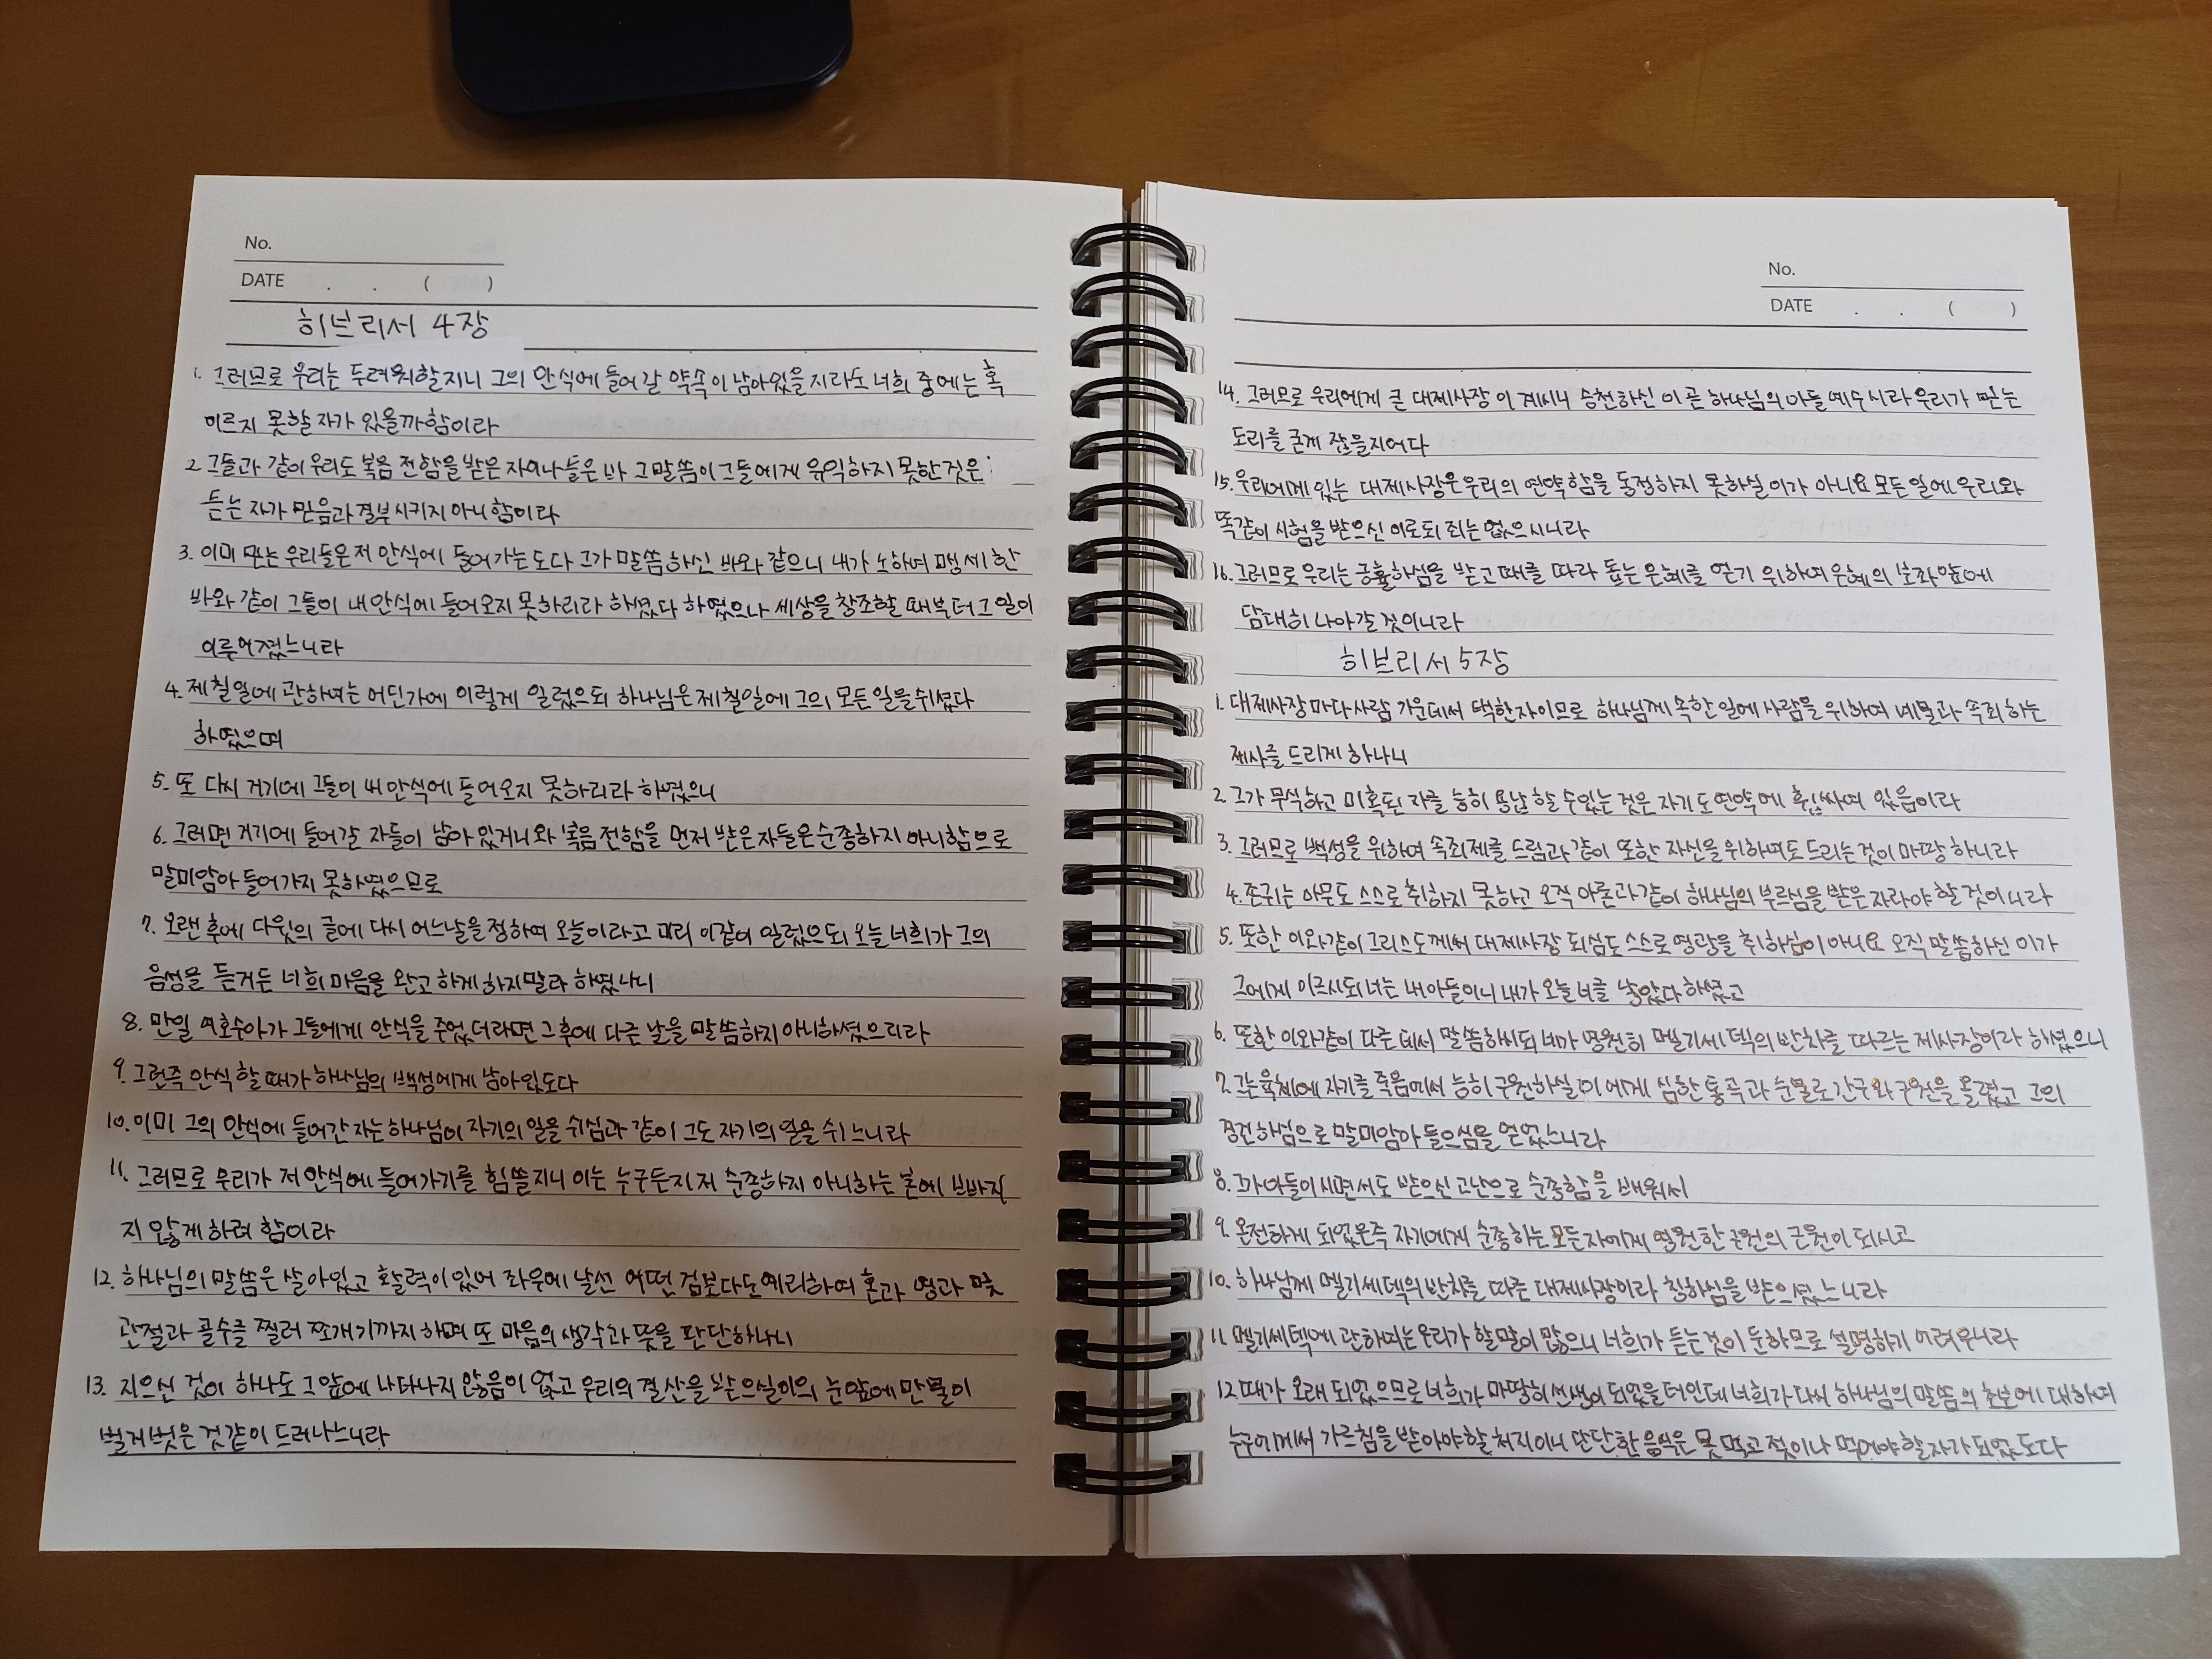 No.
DATE . . ( )
히브리서 4장
1. 그러므로 우리는 두려워할지니 그의 안식에 들어 갈 약속이 남아있을지라도 너희 중에는 혹
이르지 못할 자가 있을까함이라
2. 그들과 같이 우리도 복음 전함을 받은 자이나 들은 바 그 말씀이 그들에게 유익하지 못한것은
듣는 자가 믿음과 결부시키지 아니함이라
3. 이미 믿는 우리들은 저 안식에 들어가는도다 그가 말씀하신 바와 같으니 내가 노하여 맹세한
바와 같이 그들이 내 안식에 들어오지 못하리라 하셨다 하였으나 세상을 창조할 때부터 그 일이
이루어졌느니라
4. 제칠일에 관하여는 어딘가에 이렇게 일렀으되 하나님은 제칠일에 그의 모든 일을 쉬셨다
하였으며
5. 또 다시 거기에 그들이 내 안식에 들어오지 못하리라 하였으니
6. 그러면 거기에 들어갈 자들이 남아 있거니와 복음 전함을 먼저 받은 자들은 순종하지 아니함으로
말미암아 들어가지 못하였으므로
7. 오랜 후에 다윗의 글에 다시 어느날을 정하여 오늘이라고 미리 이같이 일렀으되 오늘 너희가 그의
음성을 듣거든 너희 마음을 완고하게 하지말라 하였나니
8. 만일 여호수아가 그들에게 안식을 주었더라면 그 후에 다른 날을 말씀하지 아니하셨으리라
9. 그런즉 안식할 때가 하나님의 백성에게 남아있도다
10. 이미 그의 안식에 들어간 자는 하나님이 자기의 일을 쉬심과 같이 그도 자기의 일을 쉬느니라
11. 그러므로 우리가 저 안식에 들어가기를 힘쓸지니 이는 누구든지 저 순종하지 아니하는 본에 빠지
지 않게 하려 함이라
12. 하나님의 말씀은 살아있고 활력이 있어 좌우에 날선 어떤 검보다도 예리하여 혼과 영과 및
관절과 골수를 찔러 쪼개기까지 하며 또 마음의 생각과 뜻을 판단하나니
13. 지으신 것이 하나도 그 앞에 나타나지 않음이 없고 우리의 결산을 받으실 이의 눈 앞에 만물이
벌거벗은 것같이 드러나느니라
No.
DATE . . ( )
14. 그러므로 우리에게 큰 대제사장이 계시니 승천하신 이 곧 하나님의 아들 예수시라 우리가 믿는
도리를 굳게 잡을지어다
15. 우리에게 있는 대제사장은 우리의 연약함을 동정하지 못하실 이가 아니요 모든 일에 우리와
똑같이 시험을 받으신 이로되 죄는 없으시니라
16. 그러므로 우리는 긍휼하심을 받고 때를 따라 돕는 은혜를 얻기 위하여 은혜의 보좌 앞에
담대히 나아갈 것이니라
히브리서 5장
1. 대제사장마다 사람 가운데서 택한자이므로 하나님께 속한 일에 사람을 위하여 예물과 속죄하는
제사를 드리게 하나니
2. 그가 무식하고 미혹된 자를 능히 용납할 수있는 것은 자기도 연약에 휩싸여 있음이라
3. 그러므로 백성을 위하여 속죄제를 드림과 같이 또한 자신을 위하여도 드리는것이 마땅하니라
4. 존귀는 아무도 스스로 취하지 못하고 오직 아론과 같이 하나님의 부르심을 받은 자라야 할 것이니라
5. 또한 이와같이 그리스도께서 대제사장 되심도 스스로 영광을 취하심이 아니요 오직 말씀하신 이가
그에게 이르시되 너는 내 아들이니 내가 오늘 너를 낳았다 하셨고
6. 또한 이와같이 다른 데서 말씀하시되 네가 영원히 멜기세덱의 반차를 따르는 제사장이라 하셨으니
7. 그는 육체에 자기를 죽음에서 능히 구원하실 이에게 심한 통곡과 눈물로 간구와 구원을 올렸고 그의
경건하심으로 말미암아 들으심을 얻었느니라
8. 그가 아들이시면서도 받으신 고난으로 순종함을 배워서
9. 온전하게 되었은즉 자기에게 순종하는 모든자에게 영원한 구원의 근원이 되시고
10. 하나님께 멜기세덱의 반차를 따른 대제사장이라 칭하심을 받으셨느니라
11. 멜기세덱에 관하여는 우리가 할 말이 많으니 너희가 듣는것이 둔하므로 설명하기 어려우니라
12. 때가 오래 되었으므로 너희가 마땅히 선생이 되었을 터인데 너희가 다시 하나님의 말씀의 초보에 대하여
누구에게서 가르침을 받아야 할 처지이니 단단한 음식은 못 먹고 젖이나 먹어야 할 자가 되었도다